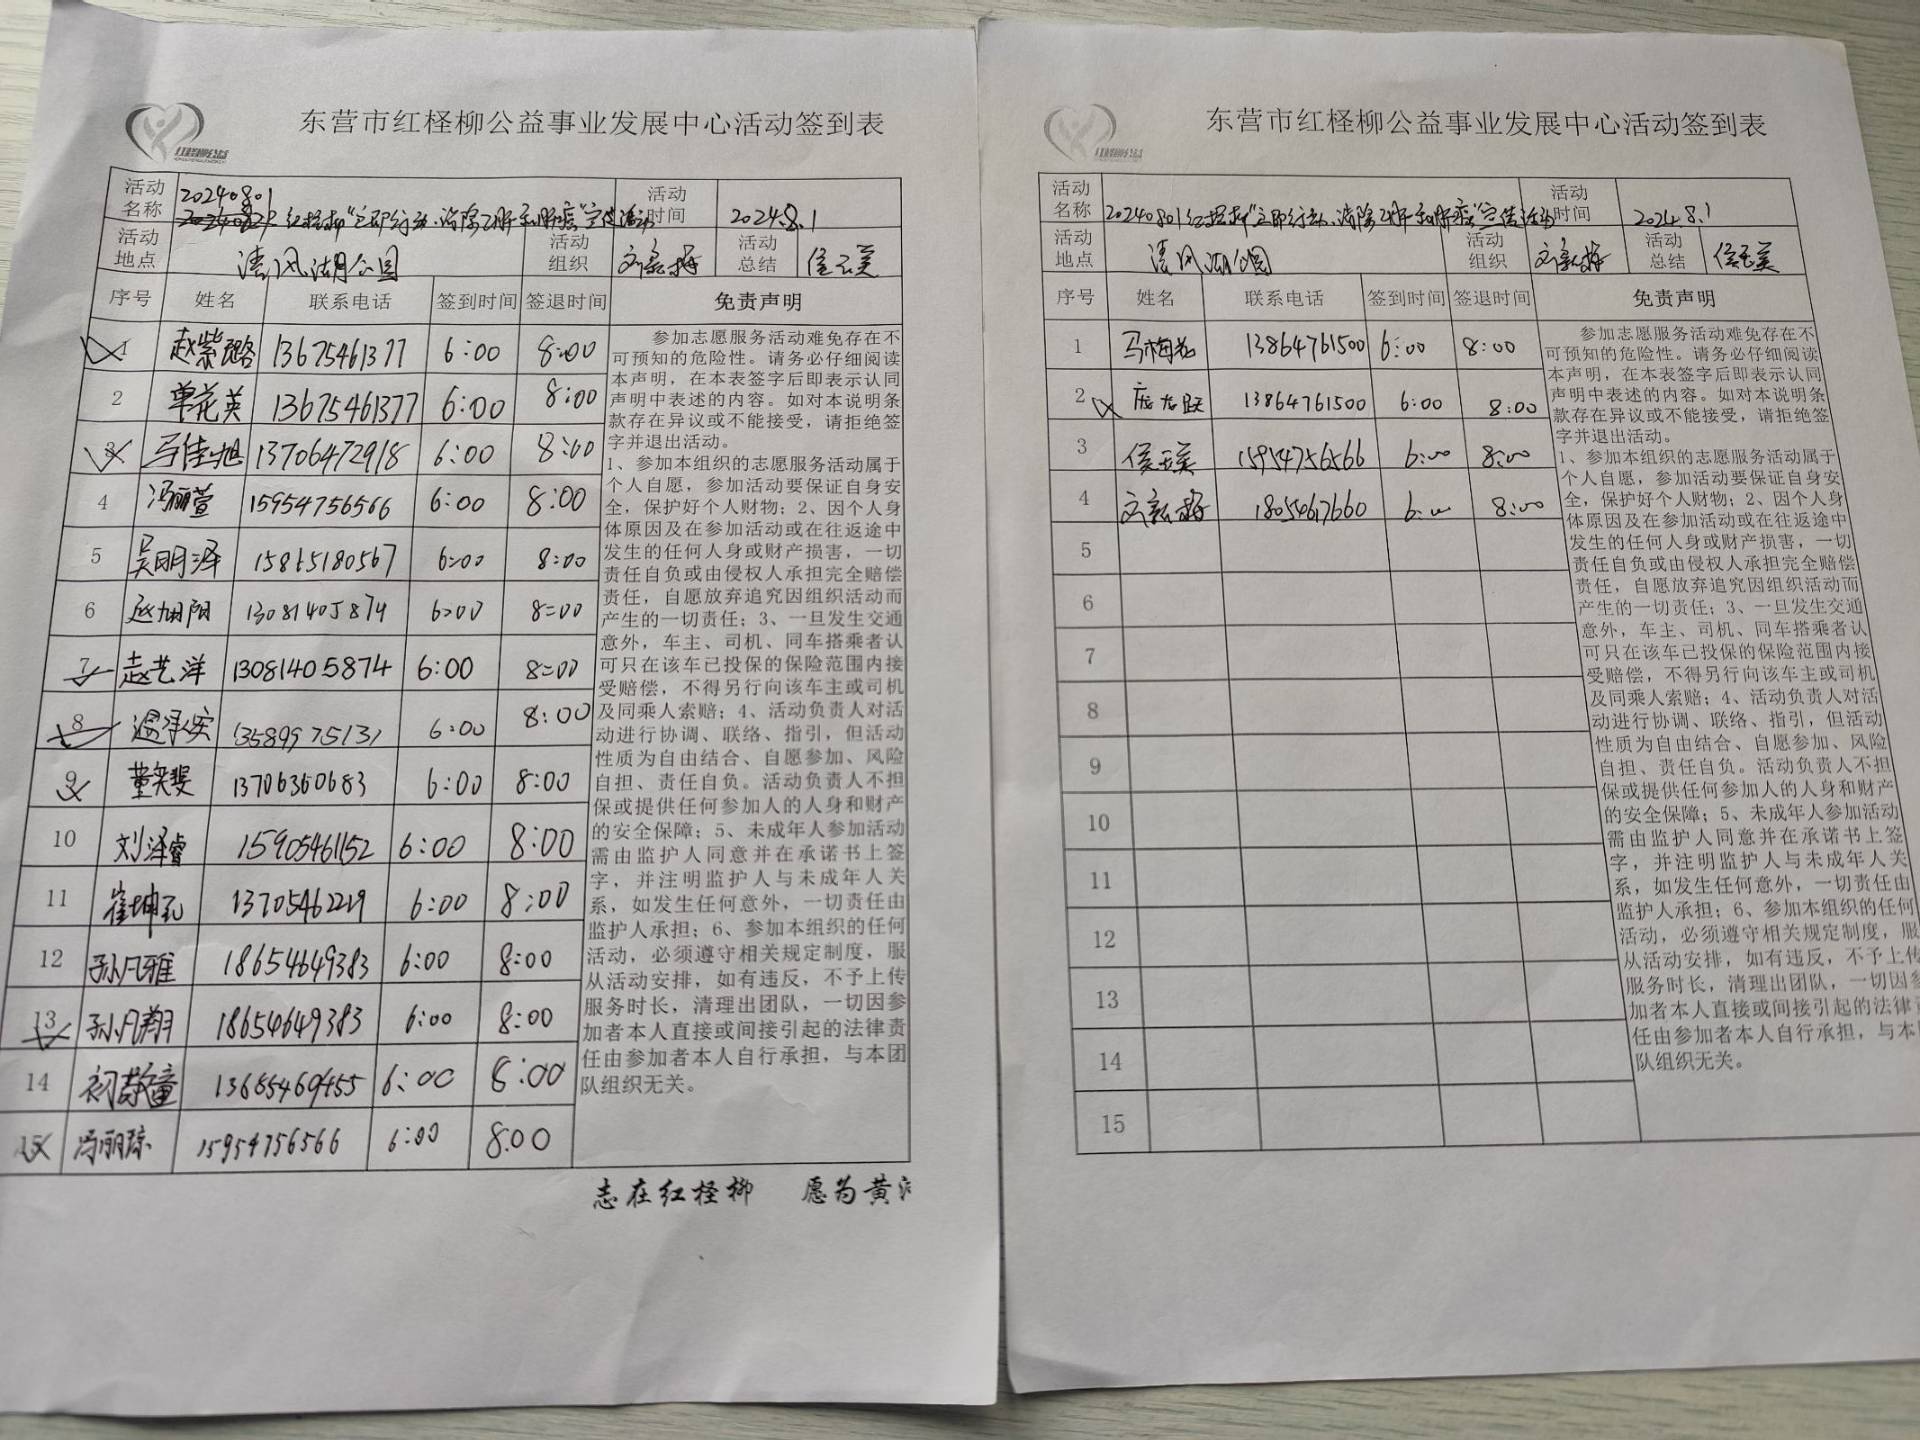 东营市红柽柳公益事业发展中心活动签到表
红柽柳公益
活动名称 20240801 红柽柳“立即行动·消除乙肝和肝癌”宣传活动 活动时间 2024.8.1
活动地点 清风湖公园 活动组织 刘新梅 活动总结 侯玉美
序号 姓名 联系电话 签到时间 签退时间 免责声明
1 赵紫璐 13675461377 6:00 8:00
2 单花英 13675461377 6:00 8:00
3 马佳旭 13706472918 6:00 8:00
4 冯丽萱 15954756566 6:00 8:00
5 吴明泽 15865180567 6:00 8:00
6 赵旭阳 13081405874 6:00 8:00
7 赵艺洋 13081405874 6:00 8:00
8 温承安 13589975131 6:00 8:00
9 董 13706360683 6:00 8:00
10 刘泽睿 15905461152 6:00 8:00
11 崔坤孔 13705462229 6:00 8:00
12 孙凡雅 18654649383 6:00 8:00
13 孙凡翔 18654649383 6:00 8:00
14 初梓童 13685469455 6:00 8:00
15 冯丽琼 15954756566 6:00 8:00
参加志愿服务活动难免存在不
可预知的危险性。请务必仔细阅读
本声明，在本表签字后即表示认同
声明中表述的内容。如对本说明条
款存在异议或不能接受，请拒绝签
字并退出活动。
1、参加本组织的志愿服务活动属于
个人自愿，参加活动要保证自身安
全，保护好个人财物；2、因个人身
体原因及在参加活动或在往返途中
发生的任何人身或财产损害，一切
责任自负或由侵权人承担完全赔偿
责任，自愿放弃追究因组织活动而
产生的一切责任；3、一旦发生交通
意外，车主、司机、同车搭乘者认
可只在该车已投保的保险范围内接
受赔偿，不得另行向该车主或司机
及同乘人索赔；4、活动负责人对活
动进行协调、联络、指引，但活动
性质为自由结合、自愿参加、风险
自担、责任自负。活动负责人不担
保或提供任何参加人的人身和财产
的安全保障；5、未成年人参加活动
需由监护人同意并在承诺书上签
字，并注明监护人与未成年人关
系，如发生任何意外，一切责任由
监护人承担；6、参加本组织的任何
活动，必须遵守相关规定制度，服
从活动安排，如有违反，不予上传
服务时长，清理出团队，一切因参
加者本人直接或间接引起的法律责
任由参加者本人自行承担，与本团
队组织无关。
志在红柽柳 愿为黄
东营市红柽柳公益事业发展中心活动签到表
红柽柳公益
活动名称 20240801红柽柳“立即行动、消除乙肝和肝癌”宣传活动 活动时间 2024.8.1
活动地点 清风湖公园 活动组织 刘新梅 活动总结 侯玉美
序号 姓名 联系电话 签到时间 签退时间 免责声明
1 马梅花 13864761500 6:00 8:00
2 庞 13864761500 6:00 8:00
3 侯玉美 15954756566 6:00 8:00
4 刘新梅 18054617660 6:00 8:00
5
6
7
8
9
10
11
12
13
14
15
参加志愿服务活动难免存在不
可预知的危险性。请务必仔细阅读
本声明，在本表签字后即表示认同
声明中表述的内容。如对本说明条
款存在异议或不能接受，请拒绝签
字并退出活动。
1、参加本组织的志愿服务活动属于
个人自愿，参加活动要保证自身安
全，保护好个人财物；2、因个人身
体原因及在参加活动或在往返途中
发生的任何人身或财产损害，一切
责任自负或由侵权人承担完全赔偿
责任，自愿放弃追究因组织活动而
产生的一切责任；3、一旦发生交通
意外，车主、司机、同车搭乘者认
可只在该车已投保的保险范围内接
受赔偿，不得另行向该车主或司机
及同乘人索赔；4、活动负责人对活
动进行协调、联络、指引，但活动
性质为自由结合、自愿参加、风险
自担、责任自负。活动负责人不担
保或提供任何参加人的人身和财产
的安全保障；5、未成年人参加活动
需由监护人同意并在承诺书上签
字，并注明监护人与未成年人关
系，如发生任何意外，一切责任由
监护人承担；6、参加本组织的任何
活动，必须遵守相关规定制度，服
从活动安排，如有违反，不予上传
服务时长，清理出团队，一切因参
加者本人直接或间接引起的法律责
任由参加者本人自行承担，与本团
队组织无关。